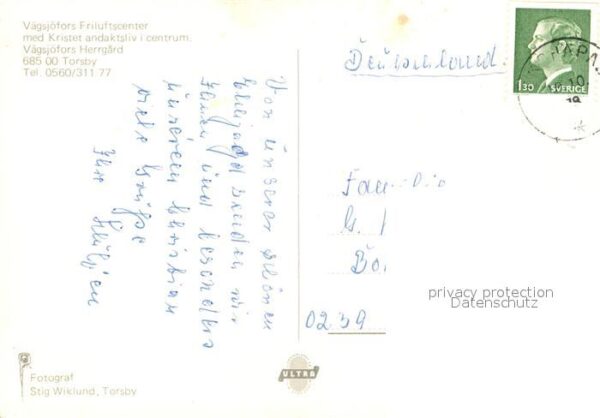 Vägsjöfors Friluftscenter
med Kristet andaktsliv i centrum.
Vägsjöfors Herrgård
685 00 Torsby
Tel. 0560/311 77
Von unserer schönen
senden wir
Ihnen und besonders
unserem Christian
viele Grüße
Ihre
Deutschland
1.30 SVERIGE
Fam.
G.
Bo.
0239
privacy protection
Datenschutz
ULTRA
Fotograf
Stig Wiklund, Torsby